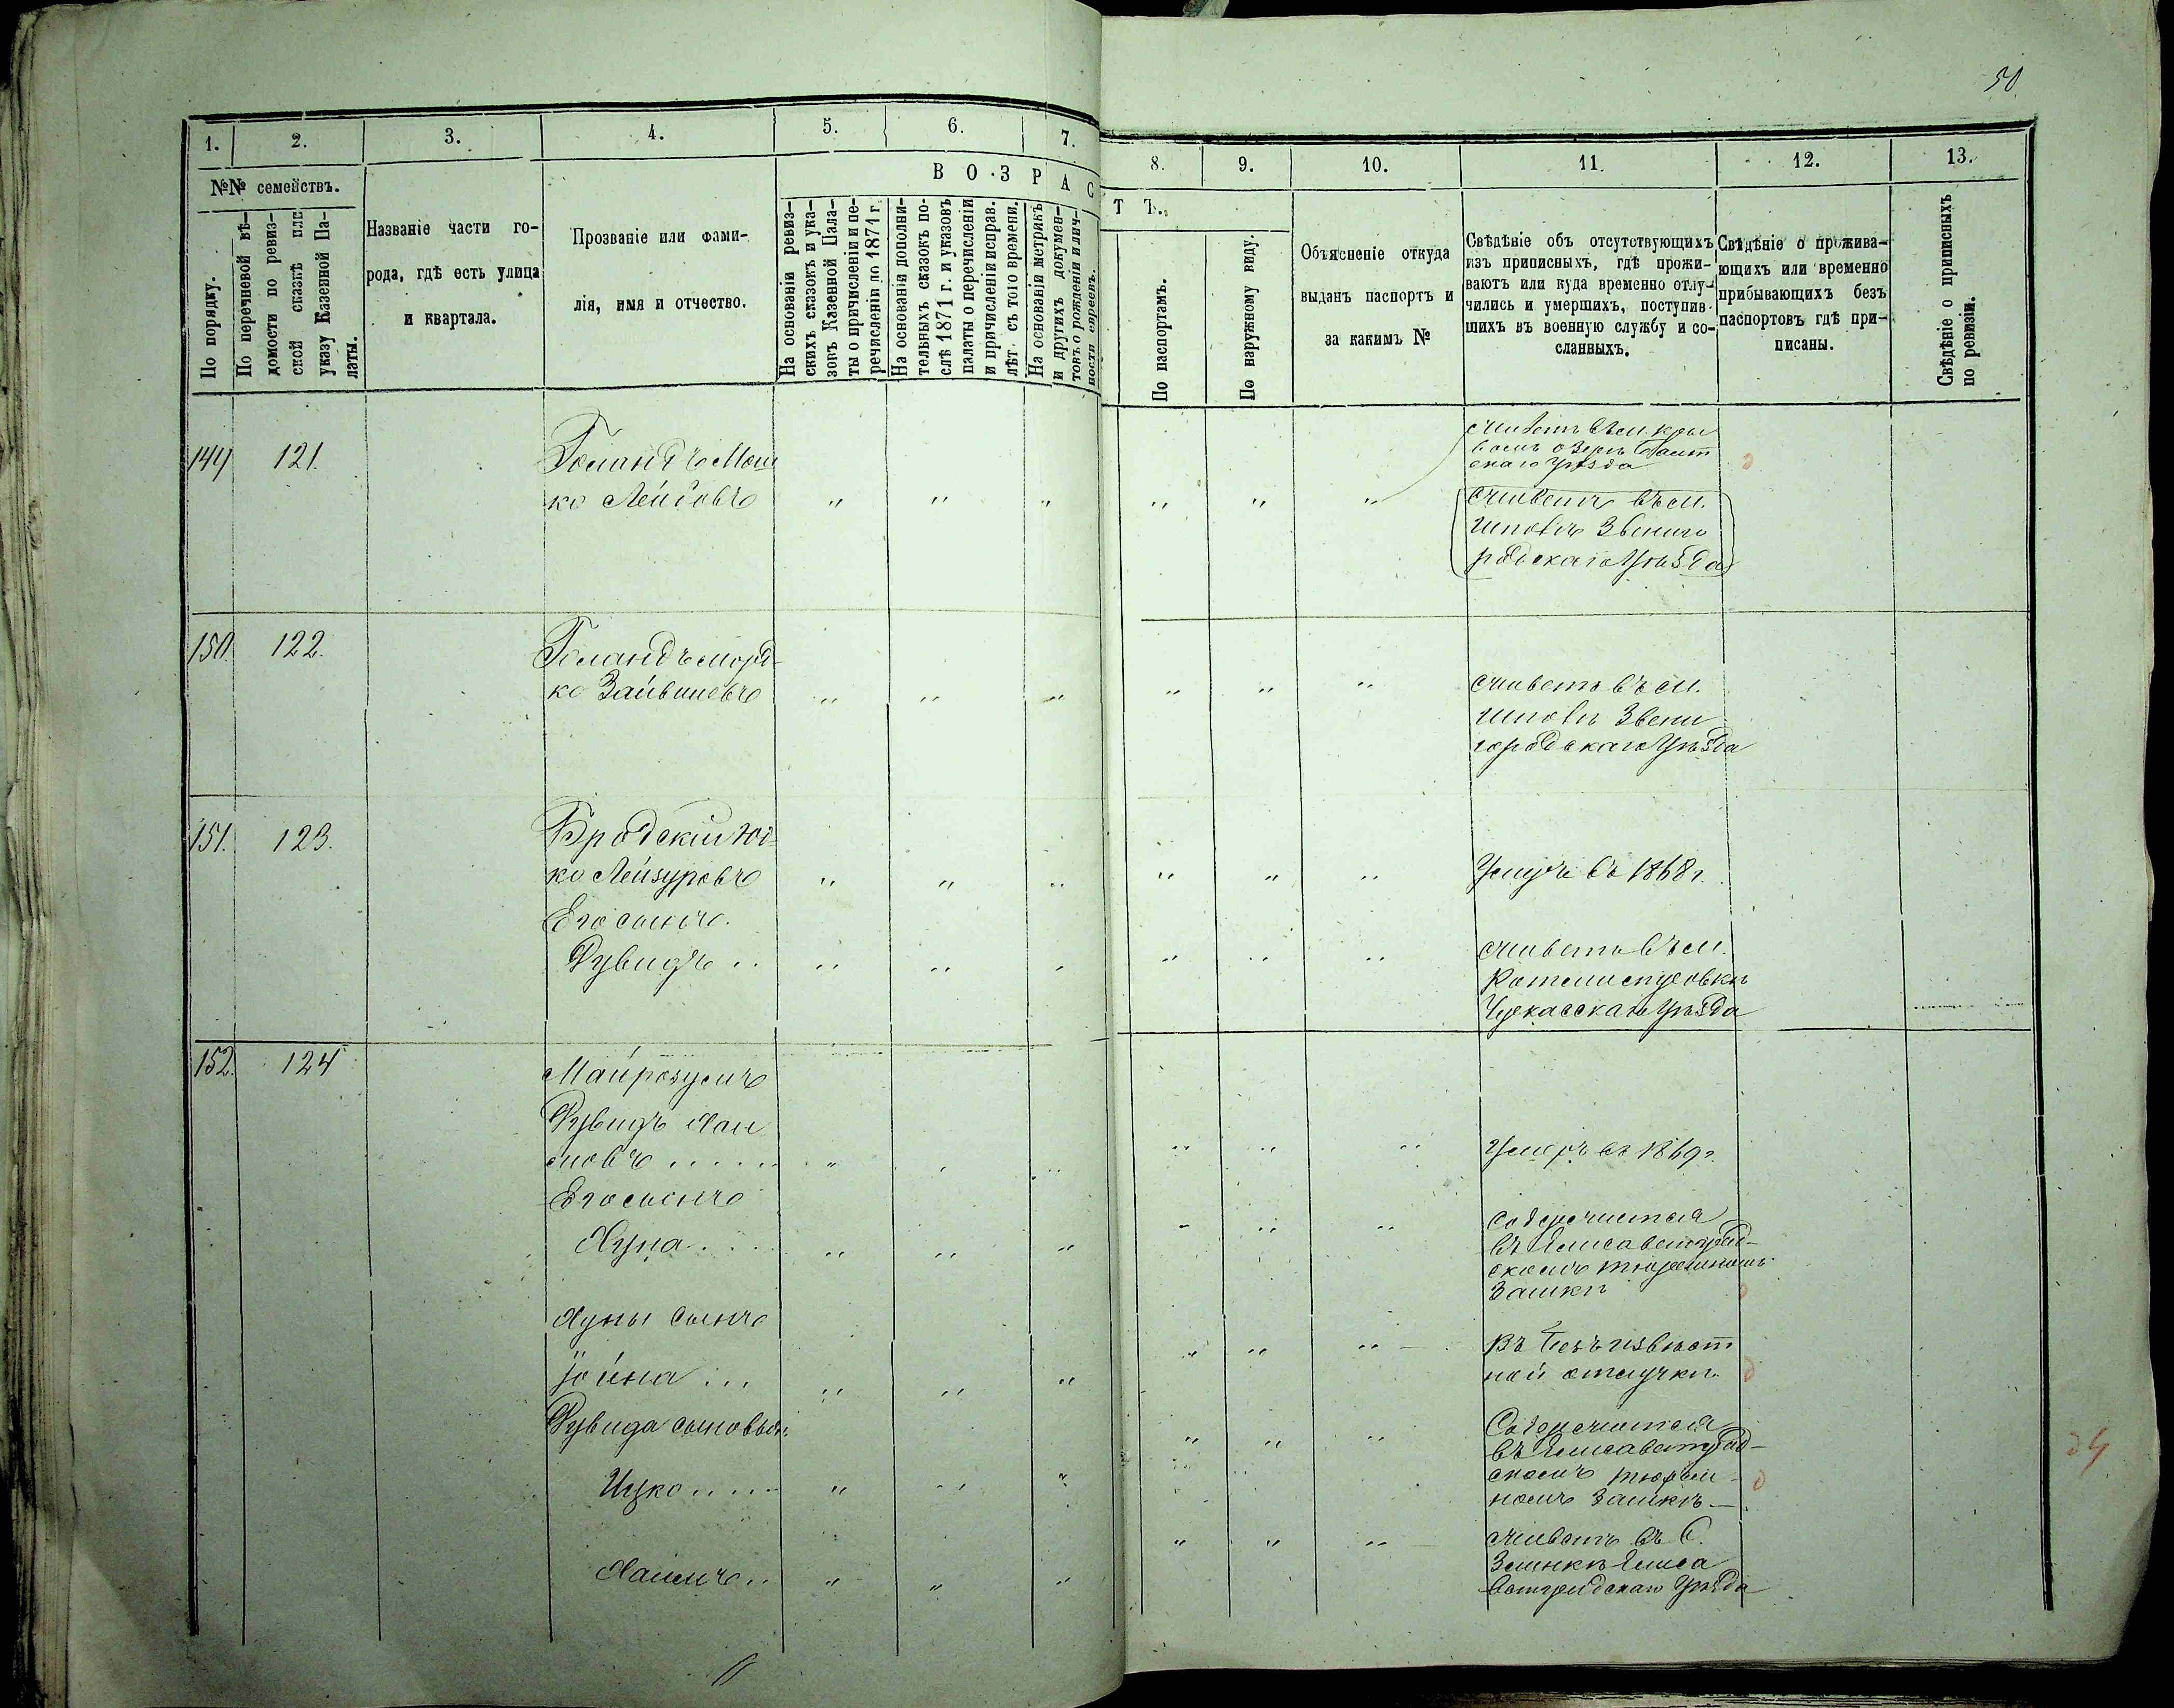 50
1.
2.
3.
4.
5.
6.
7.
8.
9.
10.
11.
12.
13.
№№ семействъ.
В О З Р А С Т Ъ.
По порядку.
По перечневой вѣ-
домости по ревиз-
ской сказкѣ или
указу Казенной Па-
латы.
Названіе части го-
рода, гдѣ есть улица
и квартала.
Прозваніе или фами-
лія, имя и отчество.
На основаніи ревиз-
скихъ сказокъ и ука-
зовъ Казенной Пала-
ты о причисленіи и пе-
речисленіи по 1871 г.
На основаніи дополни-
тельныхъ сказокъ по-
слѣ 1871 г. и указовъ
палаты о перечисленіи
и причисленіи исправ.
лѣт. съ того времени.
На основаніи метрикъ
и другихъ докумен-
товъ о рожденіи и лич-
ности евреевъ.
По паспортамъ.
По наружному виду.
Объясненіе откуда
выданъ паспортъ и
за какимъ №
Свѣдѣніе объ отсутствующихъ
изъ приписныхъ, гдѣ прожи-
ваютъ или куда временно отлу-
чились и умершихъ, поступив-
шихъ въ военную службу и со-
сланныхъ.
Свѣдѣніе о прожива-
ющихъ или временно
прибывающихъ безъ
паспортовъ гдѣ при-
писаны.
Свѣдѣніе о приписныхъ
по ревизіи.
121.
Голандъ Мош
ко Лейбовъ
живетъ въ м.
озерѣ
скаго уѣзда
живетъ въ м.
Шполѣ Звениго
родскаго Уѣзда
150. 122.
Голандъ Морд-
ко Зайвшевъ
живетъ въ м.
Шполѣ Звени
городскаго Уѣзда
151. 123.
Бродскій Юд-
ко Лейзуровъ
Умеръ въ 1868 г.
Его сынъ
Рувидъ
живетъ въ м.
Черкасскаго Уѣзда
152. 124
Рувидъ Хаи
мовъ
Умеръ въ 1869 г.
Его сынъ
Хуна
Содержится
въ Елисаветград-
скомъ тюремномъ
Замкѣ
Хуны сынъ
Іойна
Въ безъизвѣст
ной отлучкѣ.
Рувида сыновья
Ицко
Содержится
въ Елисаветград-
скомъ тюрем-
номъ Замкѣ
Хаимъ
живетъ въ С.
Елиса
ветградскаго Уѣзда